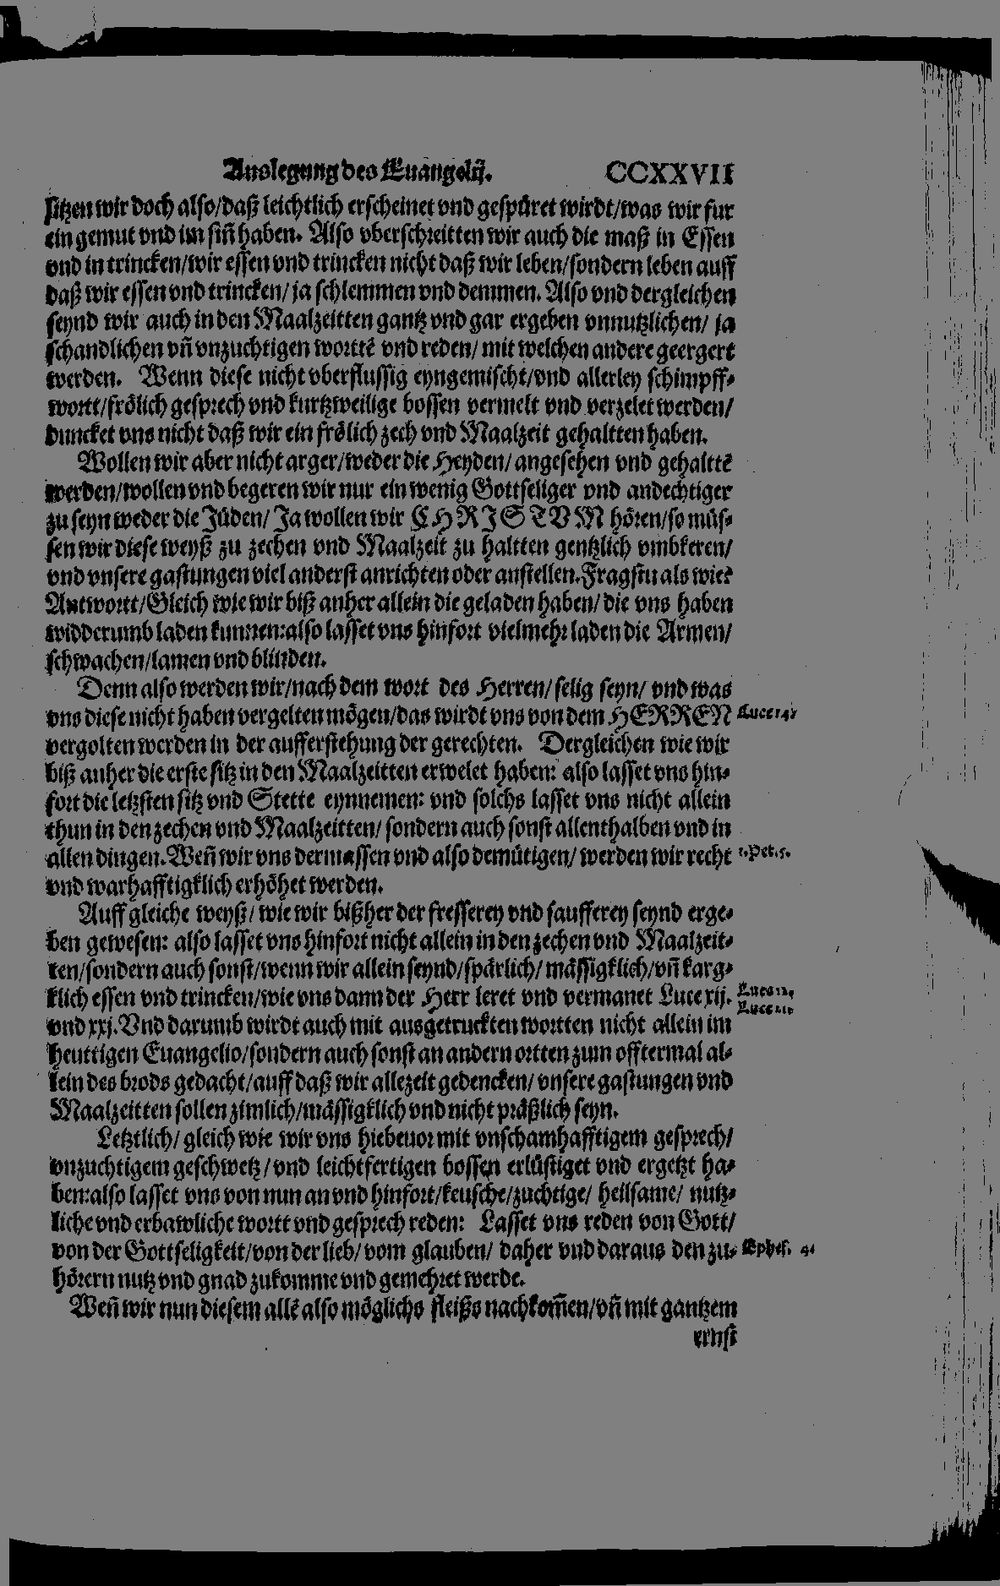 Auslegung des Euangelij. CCXXVII
sitzen wir doch also/daß leichtlich erscheinet vnd gespüret wirdt/was wir fur
ein gemut vnd im siñ haben. Also vberschreitten wir auch die maß in Essen
vnd in trincken/wir essen vnd trincken nicht daß wir leben/sondern leben auff
daß wir essen vnd trincken/ ja schlemmen vnd demmen. Also vnd dergleichen
seynd wir auch in den Maalzeitten gantz vnd gar ergeben vnnutzlichen/ ja
schandlichen vñ vnzuchtigenworttẽ vnd reden/ mit welchen andere geergert
werden. Wenn diese nicht vberflussig eyngemischt/vnd allerley schimpff-
wortt/frölich gesprech vnd kurtzweilige bossen vermelt vnd verzelet werden/
duncket vns nicht daß wir ein frölich zech vnd Maalzeit gehaltten haben.
Wollen wir aber nicht arger/weder die Heyden/ angesehen vnd gehalttẽ
werden/wollen vnd begeren wir nur ein wenig Gottseliger vnd andechtiger
zu seyn weder die Jüden/ Ja wollen wir CHRISTVM hören/so müs-
sen wir diese weyß zu zechen vnd Maalzeit zu haltten gentzlich vmbkeren/
vnd vnsere gastungen viel anderst anrichten oder anstellen. Fragstu als wie?
Antwortt/Gleich wie wir biß anher allein die geladen haben/ die vns haben
widderumb laden kunnen:also lasset vns hinfort vielmehr laden die Armen/
schwachen/lamen vnd blinden.
Denn also werden wir/nach dem wort des Herren/ selig seyn/ vnd was
vns diese nicht haben vergelten mögen/das wirdt vns von dem HERREN Luce 14.
vergolten werden in der aufferstehung der gerechten. Dergleichen wie wir
biß anher die erste sitz in den Maalzeitten erwelet haben: also lasset vns hin-
fort die letzsten sitz vnd Stette eynnemen: vnd solchs lasset vns nicht allein
thun in den zechen vnd Maalzeitten/ sondern auch sonst allenthalben vnd in
allen dingen. Weñ wir vns dermassen vnd also demütigen/ werden wir recht 1. Pet. 5.
vnd warhafftigklich erhöhet werden.
Auff gleiche weyß/ wie wir bißher der fresserey vnd saufferey seynd erge-
ben gewesen: also lasset vns hinfort nicht allein in den zechen vnd Maalzeit-
ten/sondern auch sonst/wenn wir allein seynd/spärlich/ mässigklich/vñ karg-
klich essen vnd trincken/wie vns dann der Herr leret vnd vermanet Luce xij. Luce 12.
vnd xxj. Vnd darumb wirdt auch mit ausgetruckten wortten nicht allein im Luce 21.
heuttigen Euangelio/sondern auch sonst an andern ortten zum offtermal al-
lein des brods gedacht/auff daß wir allezeit gedencken/ vnsere gastungen vnd
Maalzeitten sollen zimlich/mässigklich vnd nicht präßlich seyn.
Letztlich/ gleich wie wir vns hiebeuor mit vnschamhafftigem gesprech/
vnzuchtigem geschwetz/ vnd leichtfertigen bossen erlüstiget vnd ergetzt ha-
ben:also lasset vns von nun an vnd hinfort/keusche/zuchtige/ heilsame/ nutz-
liche vnd erbawliche wortt vnd gesprech reden: Lasset vns reden von Gott/
von der Gottseligkeit/von der lieb/ vom glauben/ daher vnd daraus den zu- Ephes. 4.
hörern nutz vnd gnad zukomme vnd gemehret werde.
Weñ wir nun diesem allẽ also möglichs fleißs nachkom̃en/vñ mit gantzem
ernst